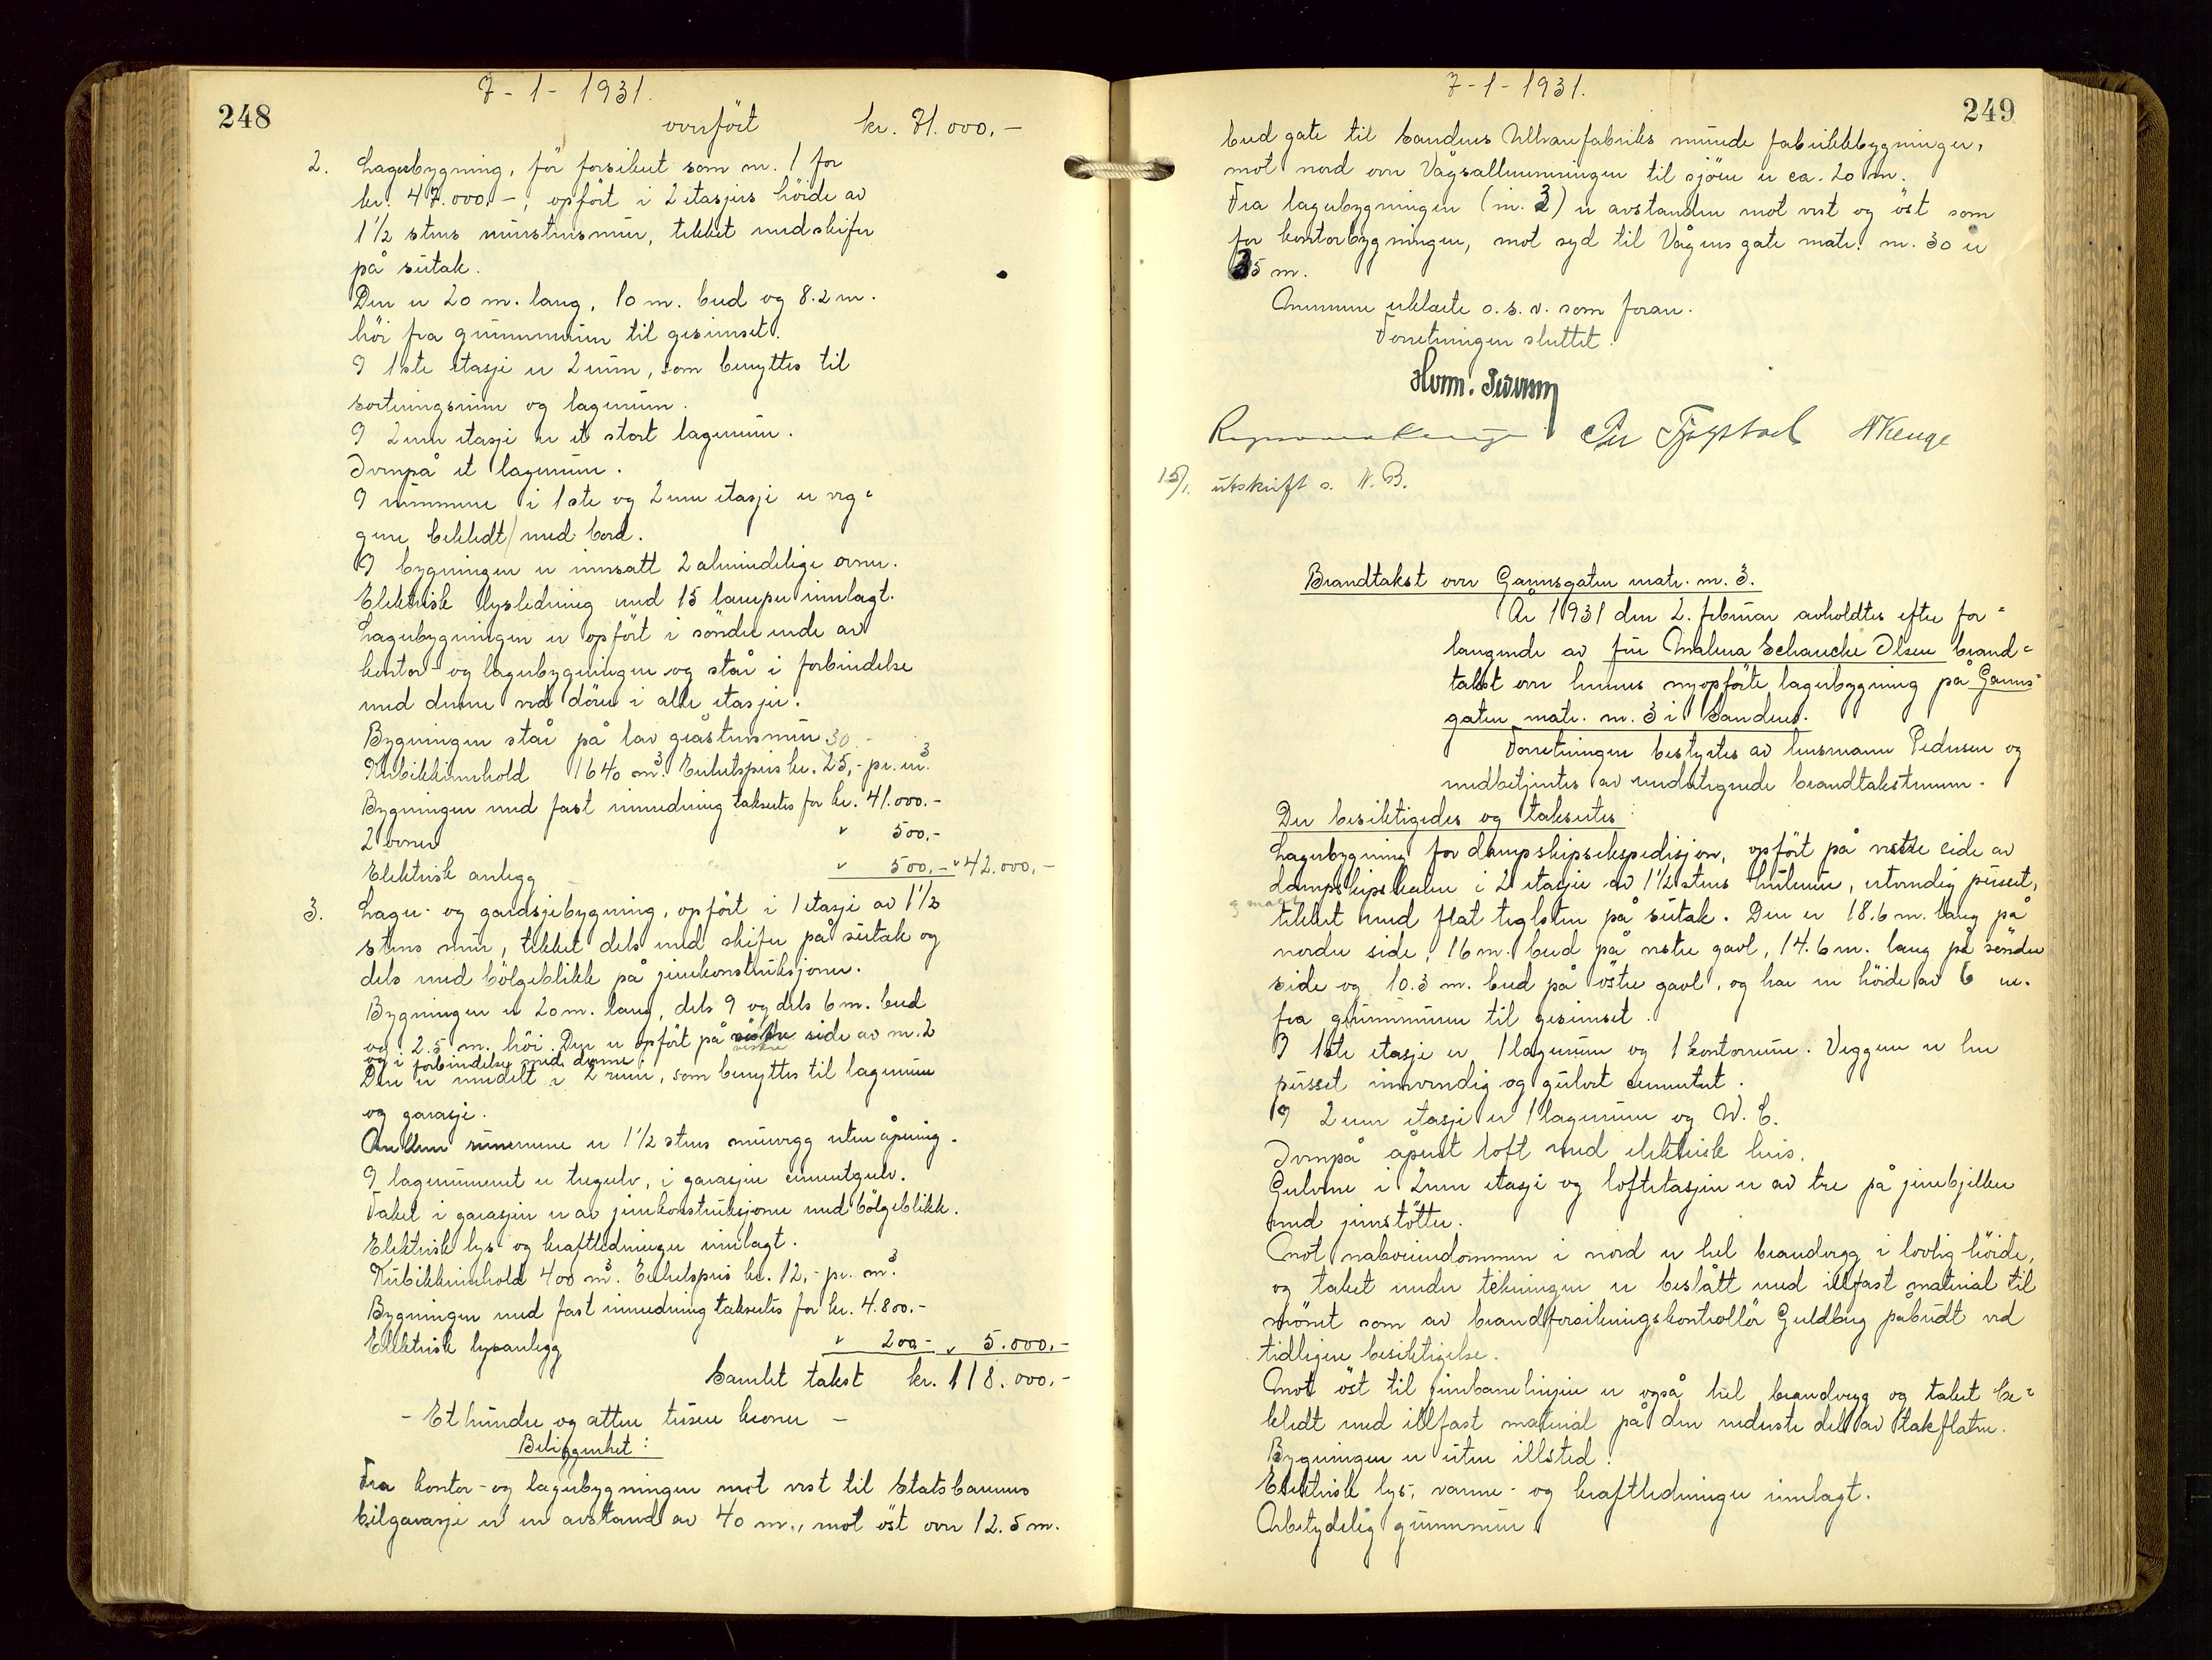 248
7-1-1931.
overført kr. 71.000.-
2. Lagerbygning, før forsikret som nr. 1 for
kr. 47.000.-, opført i 2 etasjers høide av
1 1/2 stens murstensmur, tekket med skifer
på sutak.
Den er 20 m. lang, 10 m. bred og 8.2 m.
höi fra grunnmuren til gesimset.
I 1ste etasje er 2 rum, som benyttes til
sorteringsrum og lagerrum.
I 2nen etasje er et stort lagerrum.
Ovenpå et lagerrum.
I rummene i 1ste og 2nen etasje er veg=
gene bekledt med bord.
I bygningen er innsatt 2 almindelige ovner.
Elektrisk lysledning med 15 lamper innlagt.
Lagerbygningen er opført i söndre ende av
kontor- og lagerbygningen og står i forbindelse
med denne ved dører i alle etasjer.
Bygningen står på lav gråstensmur 30.-
Kubikkinnhold 1640 m³. Enhetspris kr. 25,- pr. m³.
Bygningen med fast innredning takseres for kr. 41.000.-
2 ovner " 500.-
Elektrisk anlegg " 500.- " 42.000.-
3. Lager- og garasjebygning, opført i 1 etasje av 1 1/2
stens mur, tekket dels med skifer på sutak og
dels med bölgeblikk på jernkonstruksjoner.
Bygningen er 20 m. lang, dels 9 og dels 6 m. bred
og 2.5 m. höi. Den er opført på vestre side av nr. 2
og i forbindelse med denne.
Den er inndelt i 2 rum, som benyttes til lagerrum
og garasje.
Mellem rummene er 1 1/2 stens murvegg uten åpning.
I lagerrummet er tregulv, i garasjen cementgulv.
Taket i garasjen er av jernkonstruksjoner med bölgeblikk.
Elektrisk lys og kraftledninger innlagt.
Kubikkinnhold 400 m³. Enhetspris kr. 12,- pr. m³.
Bygningen med fast innredning takseres for kr. 4.800.-
Elektrisk lysanlegg " 200.- " 5.000.-
Samlet takst kr. 118.000.-
- Et hundre og atten tusen kroner -
Beliggenhet:
Fra kontor- og lagerbygningen mot vest til Statsbanenes
bilgarasje er en avstand av 40 m., mot öst over 12.5 m.
249
7-1-1931.
bred gate til Sandnes Uldvarefabriks murede fabrikkbygninger,
mot nord over Vågsallmenningen til sjöen er ca. 20 m.
Fra lagerbygningen (nr. 3) er avstanden mot vest og öst som
for kontorbygningen, mot syd til Vågens gate matr. nr. 30 er
35 m.
Mennene erklærte o.s.v. som foran.
Forretningen sluttet.
Herm. Pedersen
Per Fjogstad
15/1. utskrift s. N.B.
Brandtakst over Gannsgaten matr. nr. 3.
År 1931 den 2. februar avholdtes efter for=
langende av fru Malena Schancke Olsen brand=
takst over hennes nyopførte lagerbygning på Ganns=
gaten matr. nr. 3 i Sandnes.
Forretningen bestyrtes av lensmann Pedersen og
medbetjentes av undertegnede brandtakstmenn.
Der besiktigedes og takseres:
Lagerbygning for dampskipsekspedisjon, opført på vestre side av
dampskipskaien i 2 etasjer av 1 1/2 stens hulmur, utvendig pusset,
og malt
tekket med flat teglsten på sutak. Den er 18.6 m. lang på
nordre side, 16 m. bred på vestre gavl, 14.6 m. lang på söndre
side og 10.3 m. bred på östre gavl, og har en höide av 6 m.
fra grunnmuren til gesimset.
I 1ste etasje er 1 lagerrum og 1 kontorrum. Veggene er her
pusset innvendig og gulvet cementert.
I 2nen etasje er 1 lagerrum og W.C.
Ovenpå åpent loft med elektrisk heis.
Gulvene i 2nen etasje og loftetasjen er av tre på jernbjelker
med jernstötter.
Mot naboeiendommen i nord er hel brandvegg i lovlig höide,
og taket under tekningen er beslått med illfast material til
mönet som av brandforsikringskontrollör Guldberg påbudt ved
tidligere besiktigelse.
Mot öst til jernbanelinjen er også hel brandvegg og taket be=
kledt med illfast material på den nederste del av takflaten.
Bygningen er uten illsted.
Elektrisk lys, varme- og kraftledninger innlagt.
Ubetydelig grunnmur.